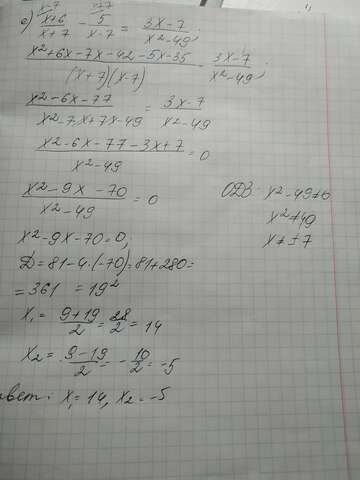 е) x-7 x+7
(x+6)/(x+7) - 5/(x-7) = (3x-7)/(x²-49);
(x²+6x-7x-42-5x-35)/((x+7)(x-7)) = (3x-7)/(x²-49);
(x²-6x-77)/(x²-7x+7x-49) = (3x-7)/(x²-49)
(x²-6x-77-3x+7)/(x²-49) = 0
(x²-9x-70)/(x²-49) = 0
ОДВ: x²-49≠0
x²≠49
x≠±7
x²-9x-70=0;
D=81-4·(-70)=81+280=
=361 =19²
x₁=(9+19)/2=28/2=14
x₂=(9-19)/2=-10/2=-5
твет: x₁=14, x₂=-5